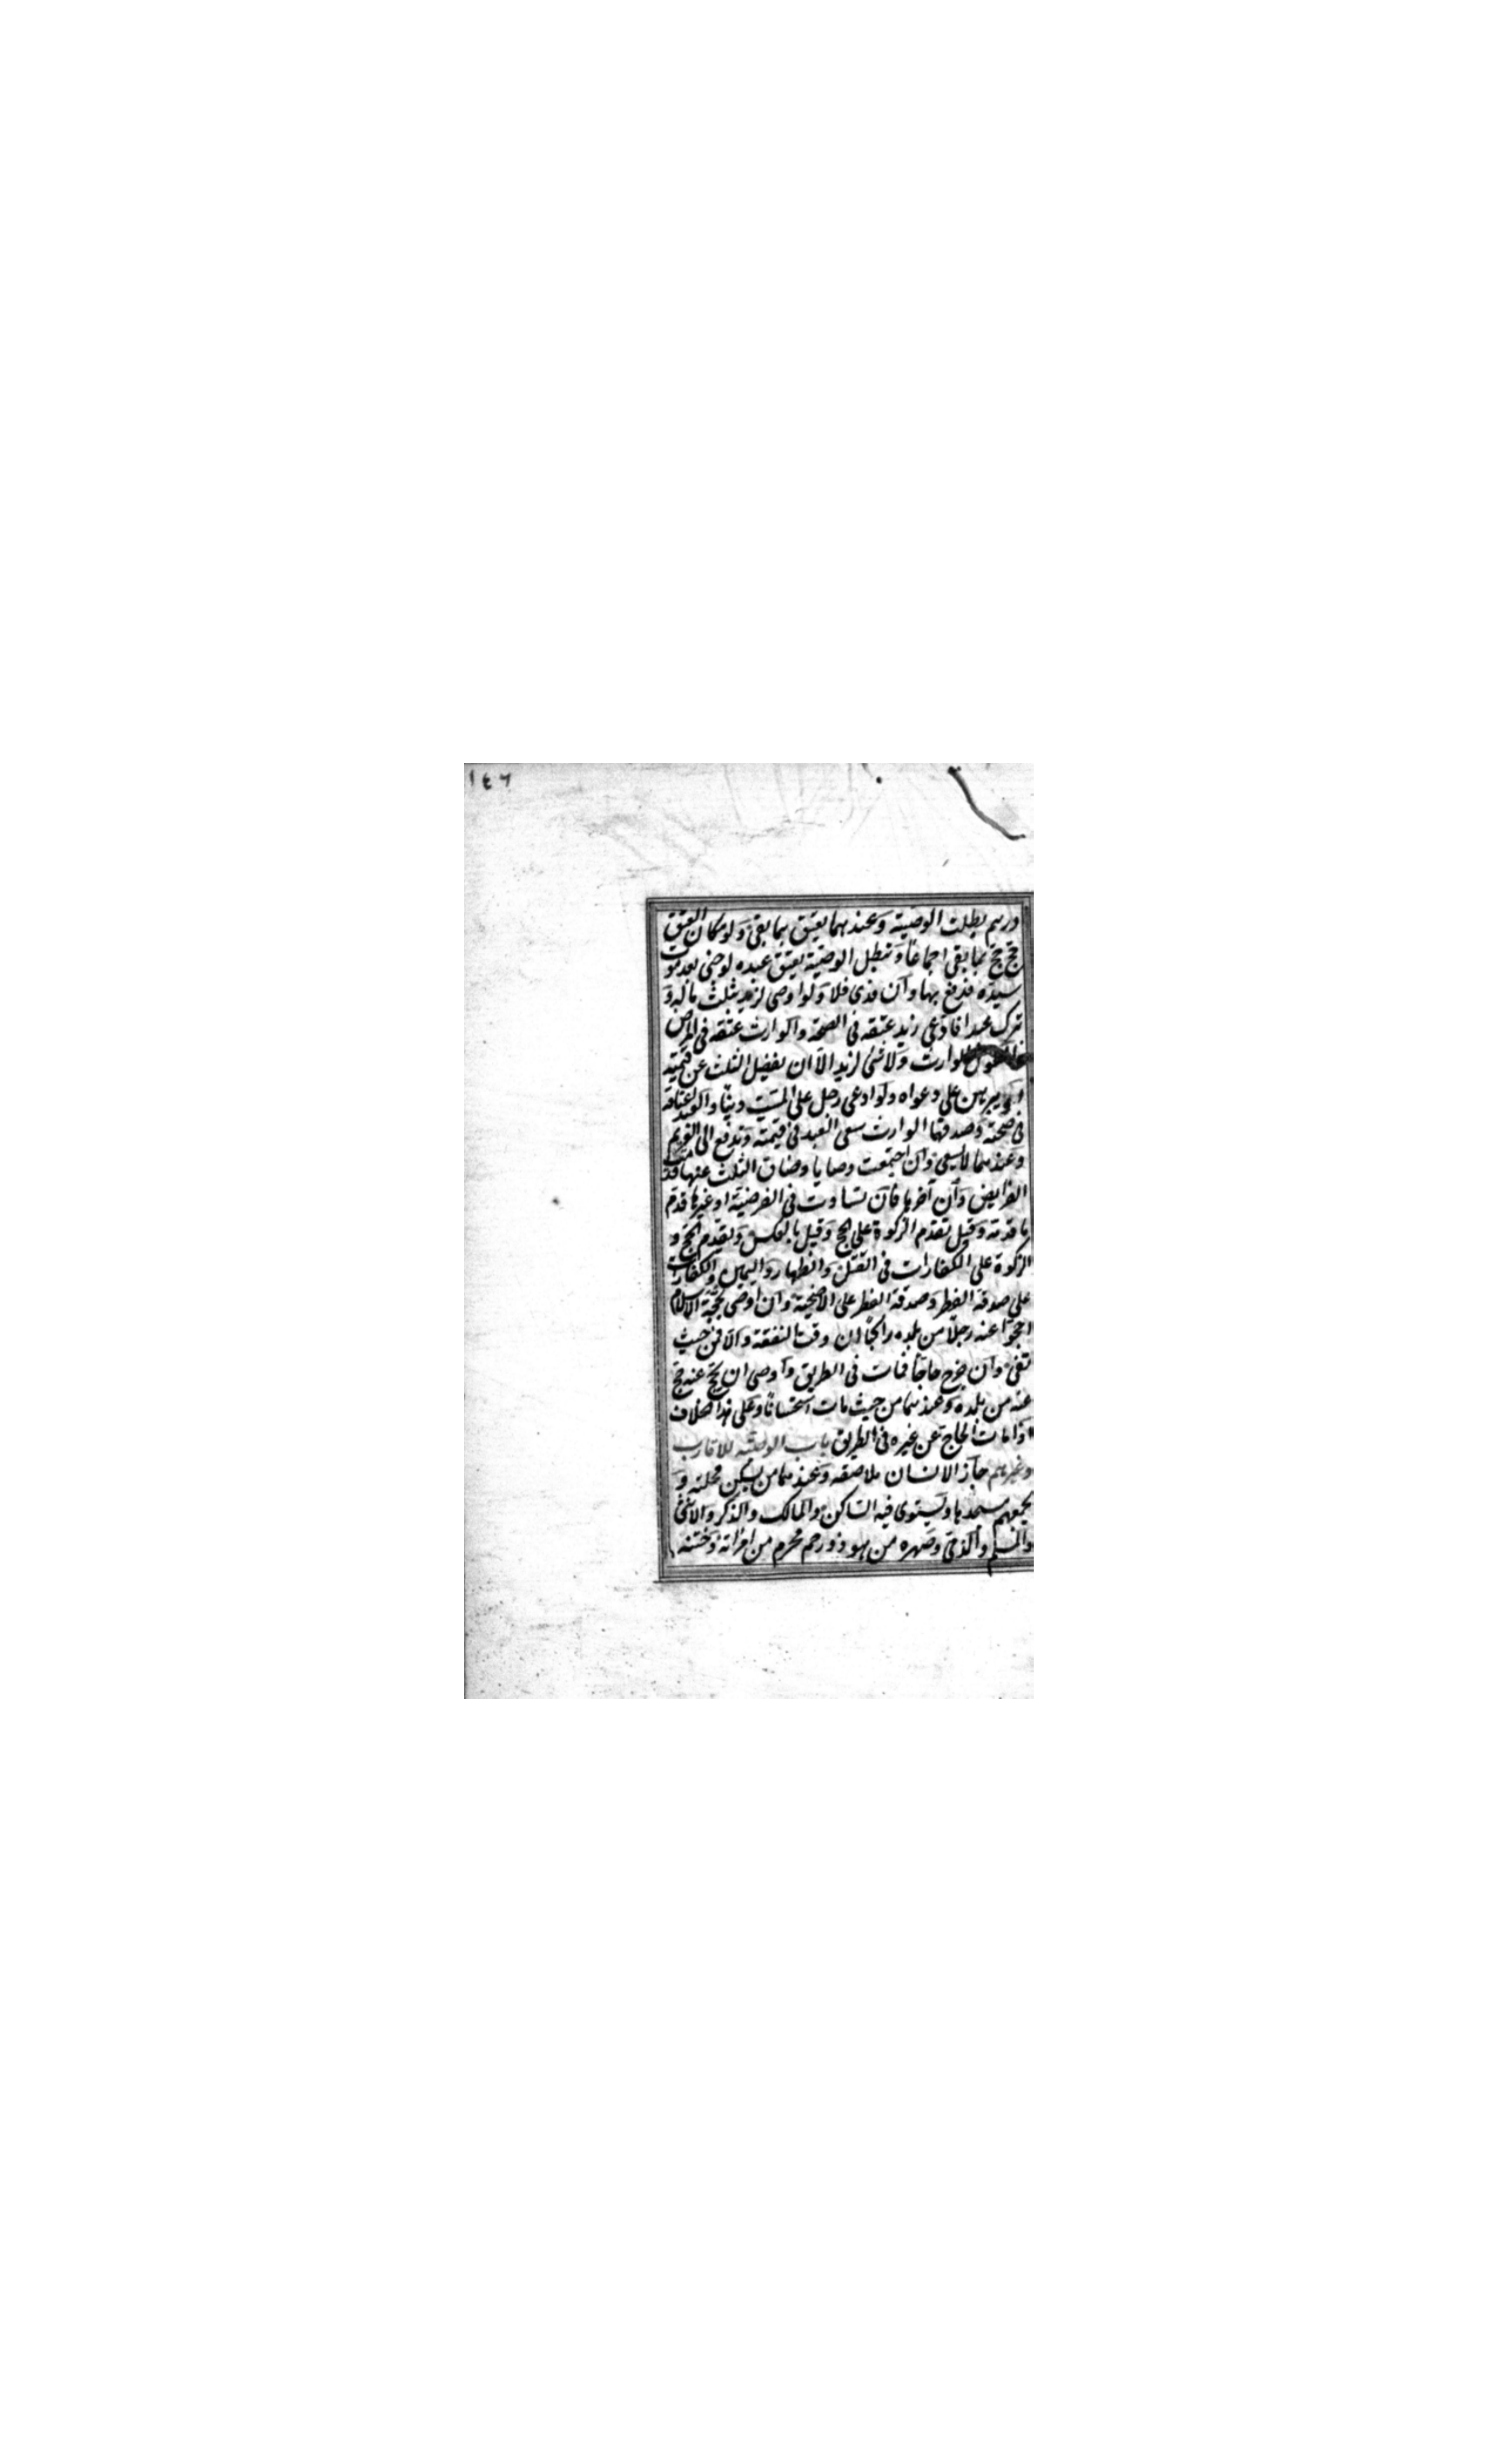 ١٤٦
درهم بطلت الوصية وعندهما يعتق بما بقى ولو مكان العتق
حج حج بما بقى اجماعا وتبطل الوصية بعتق عبده لو جنى بعد موت
سيده فدفع بها وان فدى فلا ولو اوصى لزيد بثلث ماله و
ترك عبدا فادعى زيد عتقه فى الصحة والوارث عتقه فى المرض
فالقول للوارث ولا شئ لزيد الا ان يفضل الثلث عن قيمته
او يبرهن على دعواه ولو ادعى رجل على الميت دينا والعبد اعتاقه
فى صحته وصدقهما الوارث سعى العبد فى قيمته وتدفع الى الغريم
وعندهما لا يسعى وان اجتمعت وصايا وضاق الثلث عنها قدمت
الفرايض وان اخرها فان تساوت فى الفرضية او غيرها قدم
ما قدمه وقيل تقدم الزكوة على الحج وقيل بالعكس وتقدم الحج و
الزكوة على الكفارات فى القتل والظهار واليمين والكفارات
على صدقة الفطر وصدقة الفطر على الاضحية وان اوصى بحجة الاسلام
احجوا عنه رجلا من بلده راكبا ان وفت النفقة والا فمن حيث
تفى وان خرج حاجا فمات فى الطريق واوصى ان يحج عنه حج
عنه من بلده وعندهما من حيث مات استحسانا وعلى هذا الخلاف
اذا مات الحاج عن غيره فى الطريق باب الوصية للاقارب
وغيرهم جار الانسان ملاصقه وعندهما من يسكن محلته و
يجمعهم مسجدها ويستوى فيه الساكن والمالك والذكر والانثى
والمسلم والذمى وصهره من هو ذو رحم محرم من امرأته وختنه